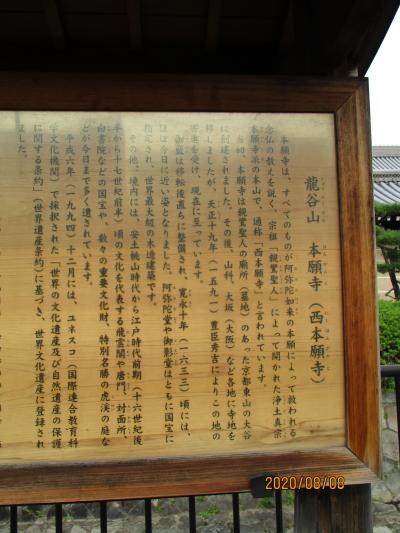 龍谷山　本願寺（西本願寺）
本願寺は、すべてのものが阿弥陀如来の本願によって救われる
念仏の教えを説く、宗祖「親鸞聖人」によって開かれた浄土真宗
本願寺派の本山で、通称「西本願寺」と言われています。
当初、本願寺は親鸞聖人の廟所（墓地）のあった京都東山の大谷
に創建されました。その後、山科、大坂（大阪）など各地に寺地を
移しましたが、天正十九年（一五九一）豊臣秀吉によりこの地の
寄進を受け、現在に至っています。
伽藍は移転後直ちに整備され、寛永十年（一六三三）頃には、
ほぼ今日に近い姿となりました。阿弥陀堂や御影堂はともに国宝に
指定され、世界最大級の木造建築です。
その他、境内には、安土桃山時代から江戸時代前期（十六世紀後
半から十七世紀前半）頃の文化を代表する飛雲閣や唐門、対面所、
白書院などの国宝や、数々の重要文化財、特別名勝の虎渓の庭な
どが今日まで多く遺されています。
平成六年（一九九四）十二月には、ユネスコ（国際連合教育科
学文化機関）で採択された「世界の文化遺産及び自然遺産の保護
に関する条約」（世界遺産条約）に基づき、世界文化遺産に登録され
ました。
2020/08/08